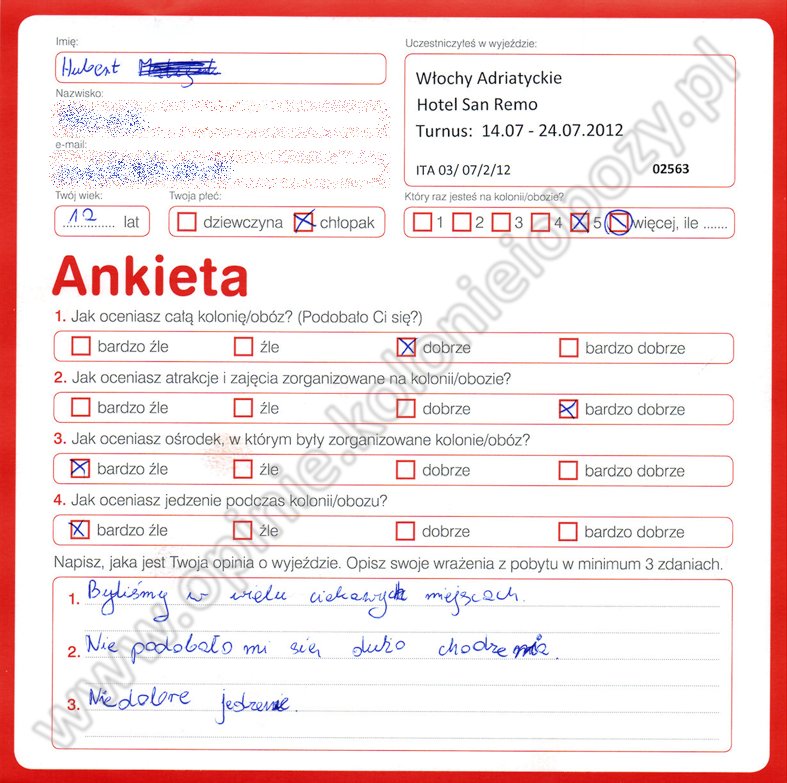 Imię:
Uczestniczyłeś w wyjeździe:
Hubert
Włochy Adriatyckie
Hotel San Remo
Turnus: 14.07 - 24.07.2012
ITA 03/ 07/2/12 02563
Nazwisko:
e-mail:
Twój wiek: Twoja płeć: Który raz jesteś na kolonii/obozie?
12 lat dziewczyna chłopak 1 2 3 4 5 więcej, ile .......
Ankieta
1. Jak oceniasz całą kolonię/obóz? (Podobało Ci się?)
bardzo źle źle dobrze bardzo dobrze
2. Jak oceniasz atrakcje i zajęcia zorganizowane na kolonii/obozie?
bardzo źle źle dobrze bardzo dobrze
3. Jak oceniasz ośrodek, w którym były zorganizowane kolonie/obóz?
bardzo źle źle dobrze bardzo dobrze
4. Jak oceniasz jedzenie podczas kolonii/obozu?
bardzo źle źle dobrze bardzo dobrze
Napisz, jaka jest Twoja opinia o wyjeździe. Opisz swoje wrażenia z pobytu w minimum 3 zdaniach.
1. Byliśmy w wielu ciekawych miejscach.
2. Nie podobało mi się dużo chodzenia.
3. Niedobre jedzenie.
www.opinie.kolonieiobozy.pl